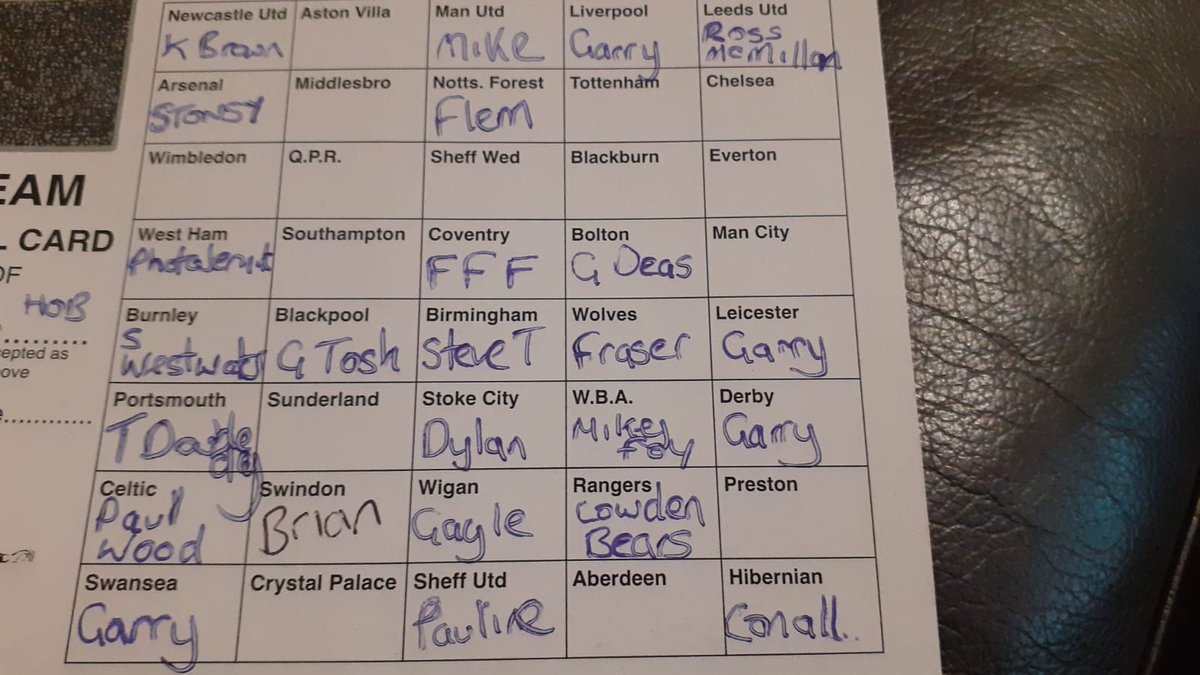 Newcastle Utd Aston Villa Man Utd Liverpool Leeds Utd
K Brown Mike Garry Ross McMillan
Arsenal Middlesbro Notts. Forest Tottenham Chelsea
STONSY Flem
Wimbledon Q.P.R. Sheff Wed Blackburn Everton
EAM
West Ham Southampton Coventry Bolton Man City
L CARD
FFF G Deas
OF
HOB
Burnley Blackpool Birmingham Wolves Leicester
S G Tosh Steve T Fraser Garry
cepted as
ove
Portsmouth Sunderland Stoke City W.B.A. Derby
T Dylan Mikey Foy Garry
Celtic Swindon Wigan Rangers Preston
Paul Wood Brian Gayle Cowden Bears
Swansea Crystal Palace Sheff Utd Aberdeen Hibernian
Garry Pauline Conall..